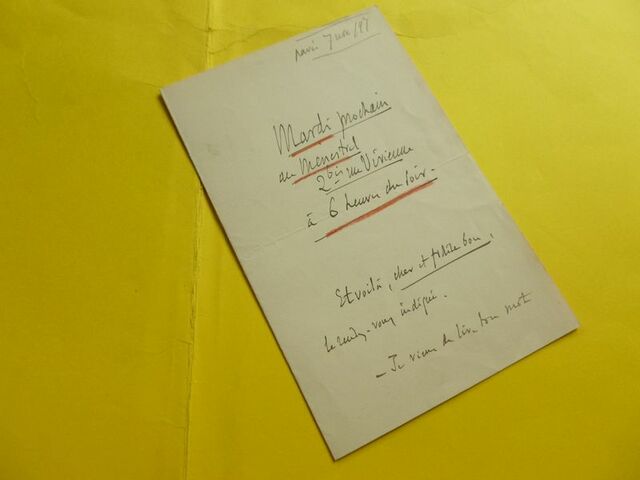 Paris 7 nov/97
Mardi prochain
au Menestrel
2 bis rue Vivienne
à 6 heures du soir -
Et voilà, cher et fidèle bon,
le rendez-vous indiqué.
- Je viens de lire ton mot